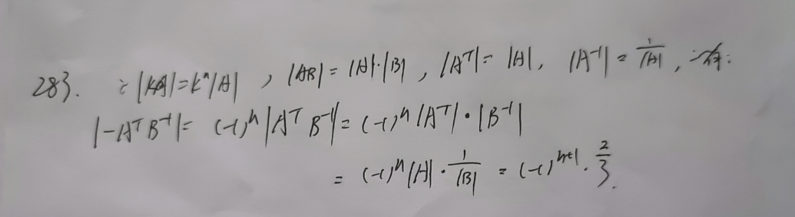 283. ∵|kA|=kⁿ|A|，|AB|=|A|·|B|，|Aᵀ|=|A|，|A⁻¹|=1/|A|，∴有：
|-AᵀB⁻¹|=(-1)ⁿ|AᵀB⁻¹|=(-1)ⁿ|Aᵀ|·|B⁻¹|
=(-1)ⁿ|A|·1/|B|=(-1)ⁿ⁺¹·2/3.